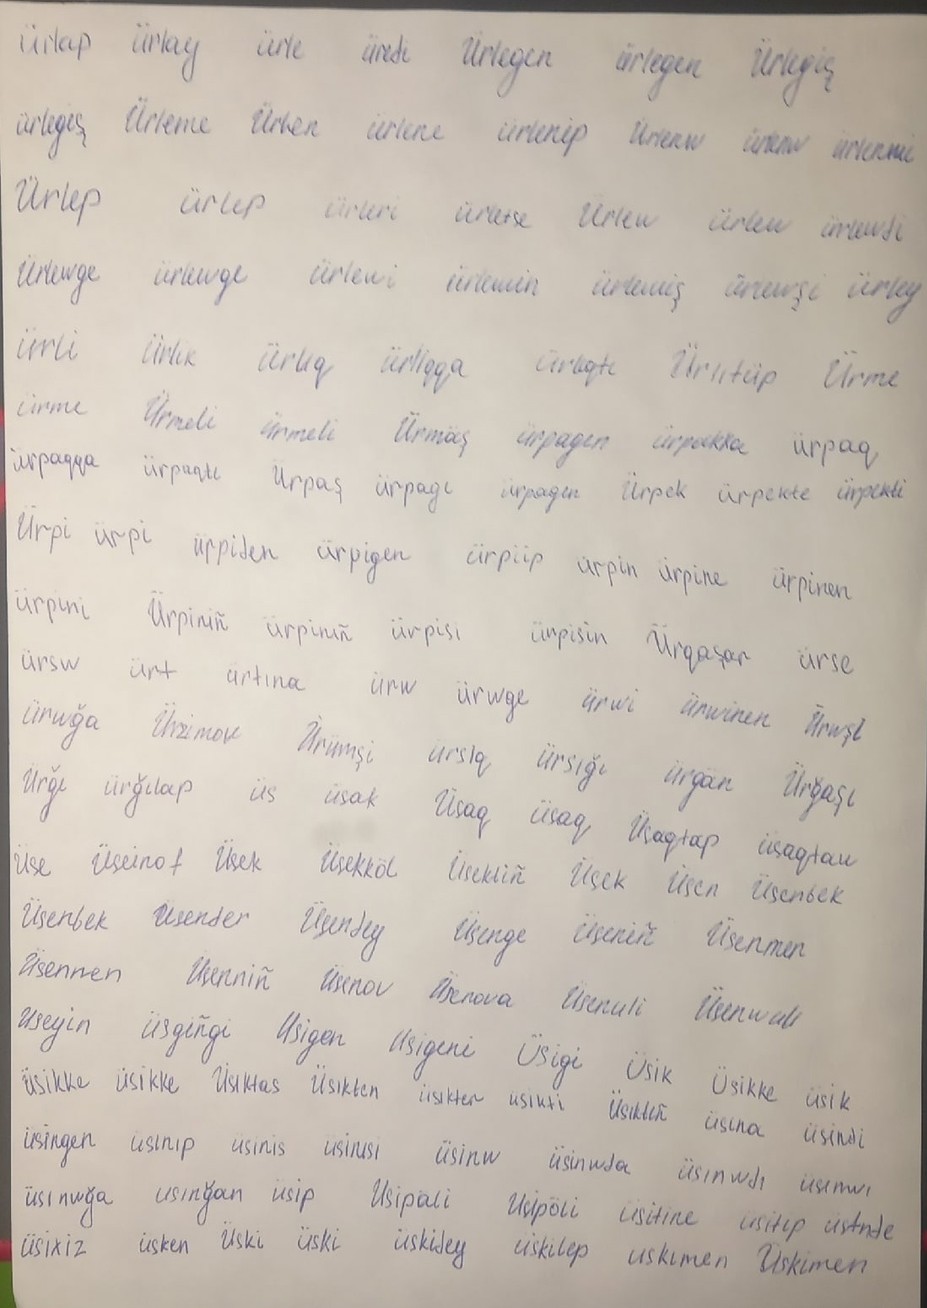 ürlap ürlay ürle üredi Ürlegen ürlegen Ürlegiş
ürlegiş Ürleme Ürlen ürlene ürlenip Ürlenw ürlenw ürlenwi
Ürlep ürlep ürleri ürletse Ürlew ürlew ürlewdi
Ürlewge ürlewge ürlewi ürlewin ürlewiş ürlewşi ürley
ürli Ürlik ürlıq ürlıqqa ürlıqtı Ürlitüp Ürme
ürme Ürmeli ürmeli Ürmäş ürpagen ürpekke ürpaq
ürpaqqa ürpaqtı Ürpaş ürpagı ürpagın Ürpek ürpekte ürpekti
Ürpi ürpi ürpiden ürpigen ürpiip ürpin ürpine ürpinen
ürpini Ürpiniñ ürpiniñ ürpisi ürpisin Ürqaşar ürse
ürsw ürt ürtına ürw ürwge ürwi ürwinen Ürwşi
ürwğa Ürzimov Ürümşi ürsıq ürsığı ürgän Ürğaşı
Ürğı ürğılap üs üsak Üsaq üsaq Üsaqtap üsaqtaw
Üse Üseinof Üsek Üsekköl Üsektiñ Üşek Üşen Üşenbek
Üşenbek Üsender Üşendey Üşenge üşeniñ Üşenmen
Üsennen Üşenniñ Üsenov Üsenova Üsenuli Üsenwalı
Üseyin üsgiñgi Üsigen Üsigeni Üsigi Üsik Üsikke üsik
üsikke üsikke Üsıktas Üsikten üsikter üsikti Üsiktiñ üsina üsindi
üsingen üsinip üsinis üsinisi üsinw üsinwda üsinwdı üsinwi
üsınwğa üsınğan üsip Üsipäli Üsipöli üsitine üsitip üstnde
üsixiz üsken Üski üski üskidey üskilep üskimen Üskimen